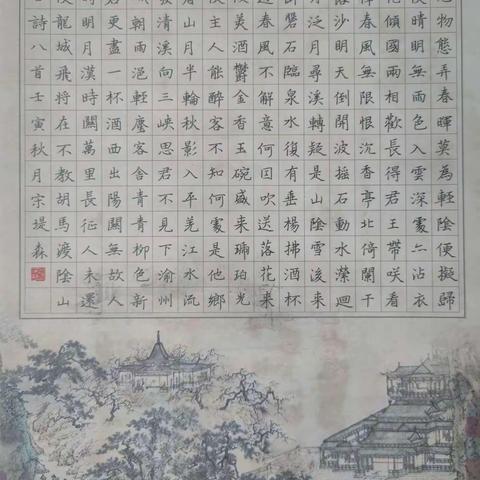 物態弄春暉莫為輕陰便擬歸
使晴明無雨色入雲深處亦沾衣
花傾國兩相歡長得君王帶咲看
釋春風無限恨沉香亭北倚闌干
落沙明天倒開波搖石動水縈迴
月泛月尋溪轉疑是山陰雪後來
磐石臨泉水復有垂楊拂酒杯
道春風不解意何因吹送落花來
美酒鬱金香玉碗盛來琥珀光
使主人能醉客不知何處是他鄉
眉山月半輪秋影入平羌江水流
發清溪向三峽思君不見下渝州
城朝雨浥輕塵客舍青青柳色新
君更盡一杯酒西出陽關無故人
時明月漢時關萬里長征人未還
使龍城飛將在不教胡馬渡陰山
詩八首壬寅秋月宗堤森